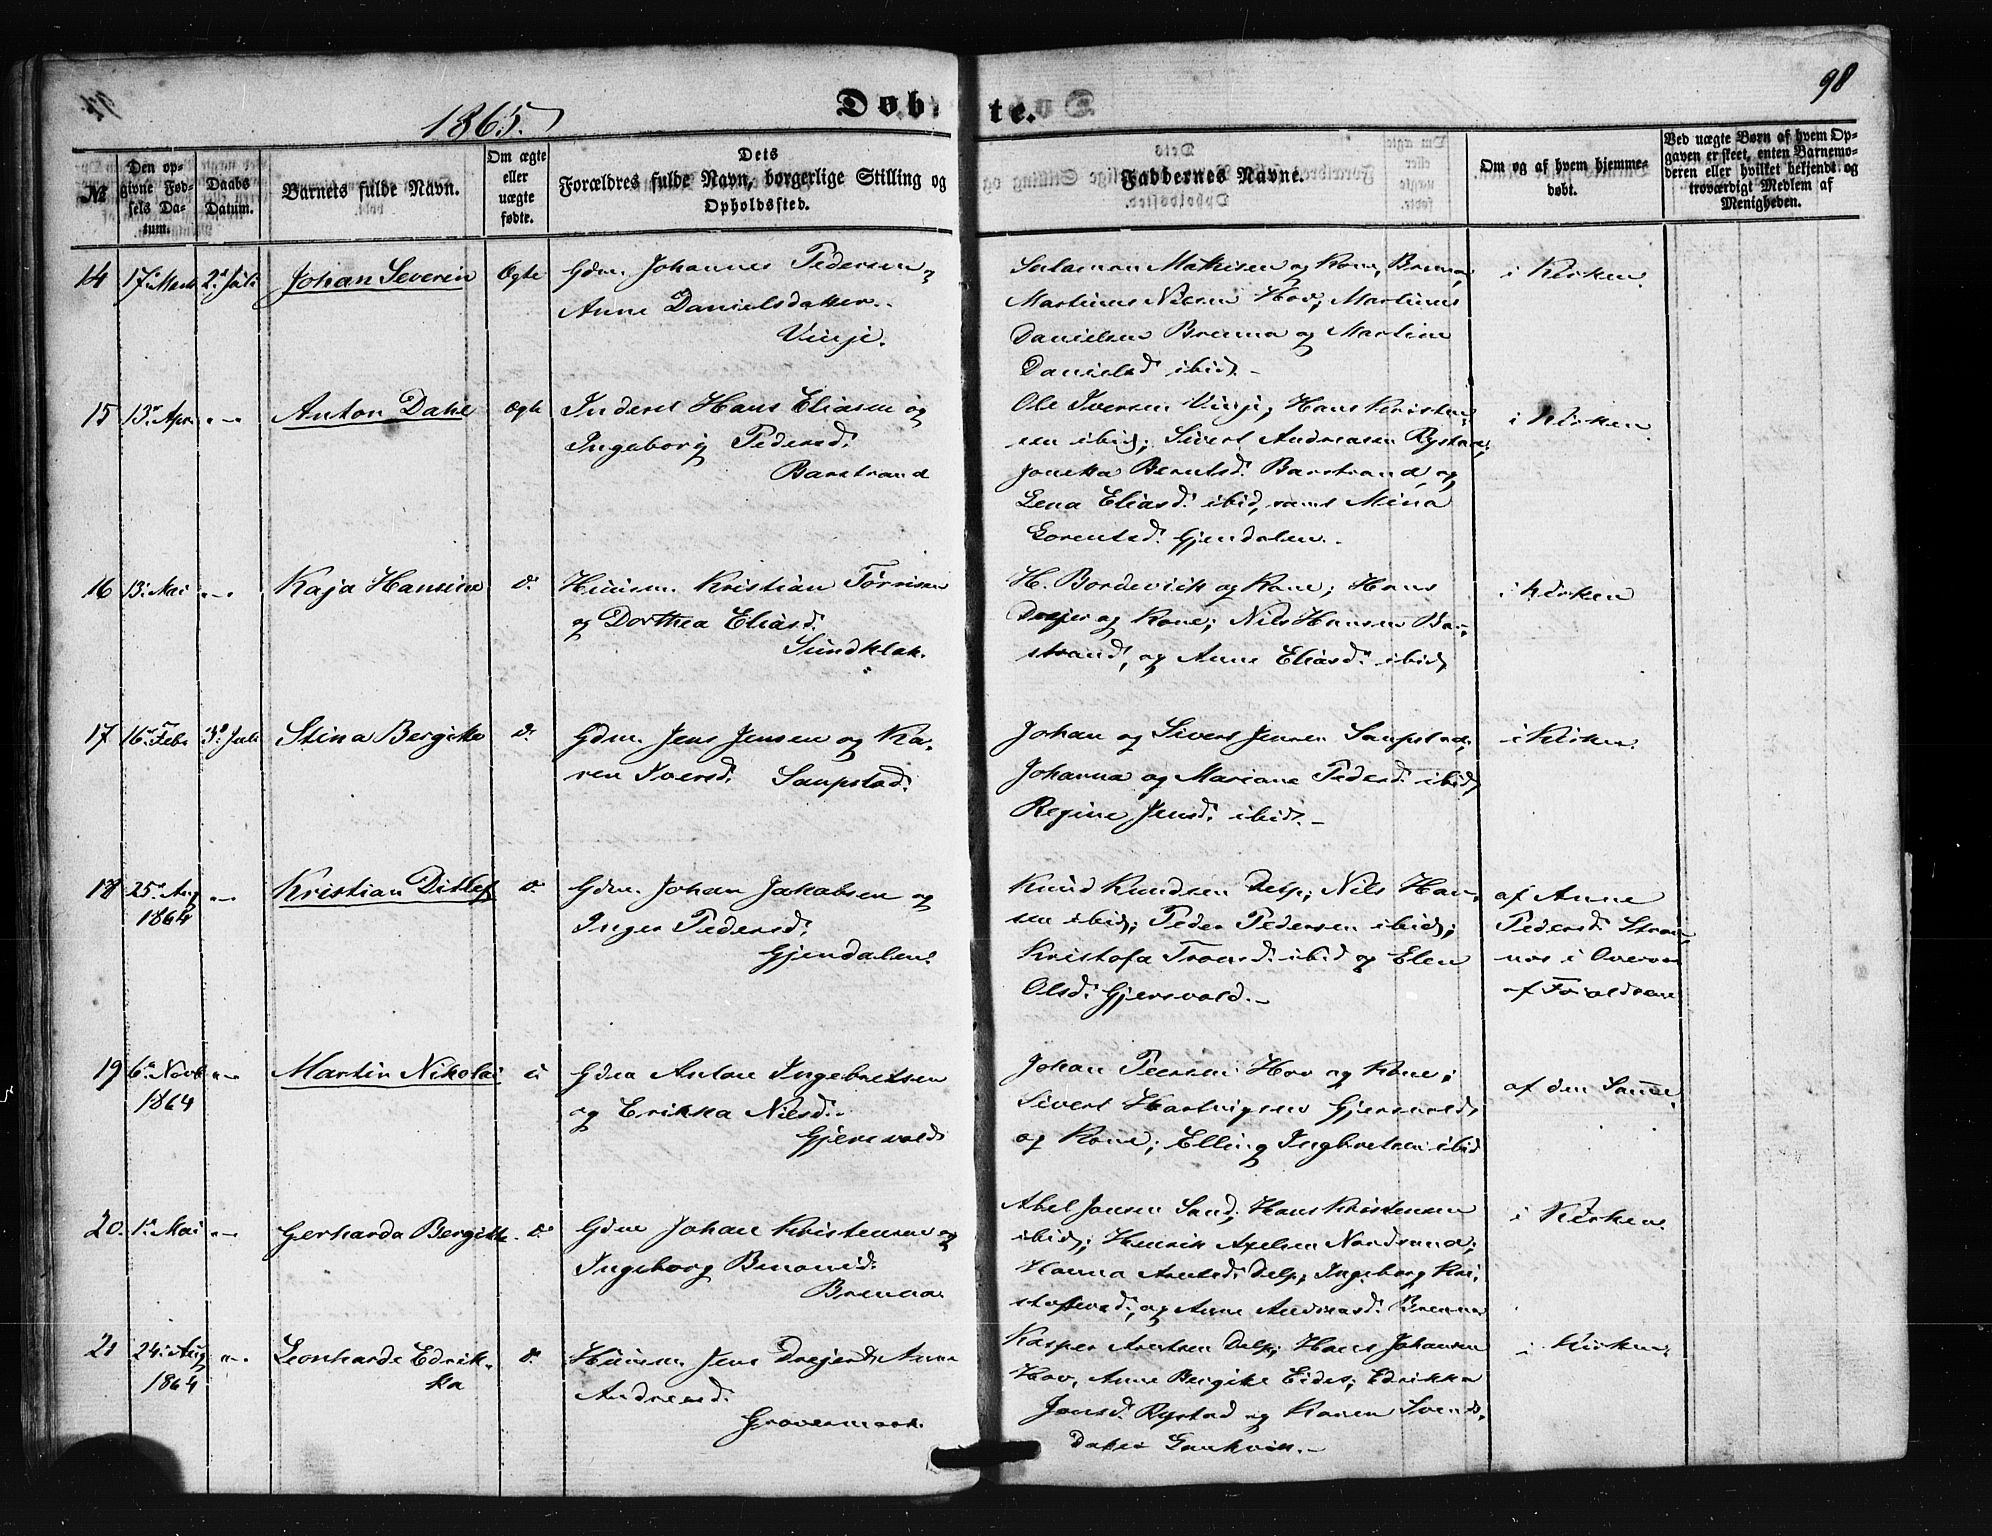 98
1865.
Døbte.
№
Den opgivne Fødsels Datum.
Daabs Datum.
Barnets fulde Navn.
Om ægte eller uægte født.
Dets Forældres fulde Navn, borgerlige Stilling og Opholdssted.
Faddernes Navne.
Om og af hvem hjemmedøbt.
Ved uægte Børn af hvem Opgaven er skeet, enten Barnemoderen eller hvilket bekjendt og troværdigt Medlem af Menigheden.
14 17. Marts 2. Juli Johan Severin Ægte
Gdm. Johannes Pedersen
Anne Danielsdatter.
Vinje.
Salamon Mathisen og Kone, Brenna,
Martinus Nilsen Hov, Martinus
Danielsen Brenna og Martine
Danielsd ibid. -
i Kirken.
15 13. Apr. -"- Anton Dahl Ægte
Inderst Hans Eliasen og
Ingeborg Pedersd.
Barstrand
Ole Iversen Vinje, Hans Kristen-
sen ibid; Sivert Andreasen Rystad;
Joneka Berntsd. Barstrand, og
Lena Eliasd. ibid, samt Mina
Lorentsd. Gjendalen.
i Kirken.
16 13. Mai -"- Kaja Hansine d.
Huusm. Kristian Tørrisen
og Dorthea Eliasd.
Sundklak.
H. Bordevich og Kone; Hans
Drejer og Kone; Nils Hansen Bar-
strand, og Anne Eliasd. ibid,
i Kirken
17 16. Febr 3. Juli Stina Bergitte d.
Gdm. Jens Jensen og Ka-
ren Iversd. Saupstad.
Johan og Sivert Jensen Saupstad;
Johanna og Mariane Pedersd. ibid,
Regine Jensd. ibid. -
i Kirken.
18 25. Aug 1864 -"- Kristian Ditlef d.
Gdm. Johan Jakobsen og
Inger Pedersd.
Gjendalen.
Knud Knudsen Delp; Nils Han-
sen ibid; Peder Pedersen ibid;
Kristofa Tronsd. ibid og Elen
Olsd. Gjersvold. -
af Anne
Pedersd.
af Forældrene
19 6. Novb 1864 -"- Martin Nikolai
Gdm Anton Ingebretsen
og Erikka Nilsd.
Gjersvold
Johan Peersen Hov og Kone;
Sivert Hartvigsen Gjersvold
og Kone; Elling Ingbretsen ibid
af den Samme.
20. 1. Mai -"- Gerharda Bergitte d.
Gdm Johan Kristensen og
Ingeborg Benonid.
Brenna
Abel Jonsen Sand; Hans Kristensen
ibid; Henrik Axelsen Nordsand;
Hanna Arntsd. Delp; Ingeborg Kri-
stoffersd., og Anne Andreasd. Brenna
i Kirken.
21 24. Aug 1864 -"- Leonharde Edrik-
ka d.
Huusm. Jens Drejer & Anne
Andreasd.
Grovermark.
Kasper Arntsen Delp; Hans Johansen
Hov, Anne Bergitte Eidet; Edrikka
Jonsd. Rystad og Karen Svends-
datter
i Kirken.